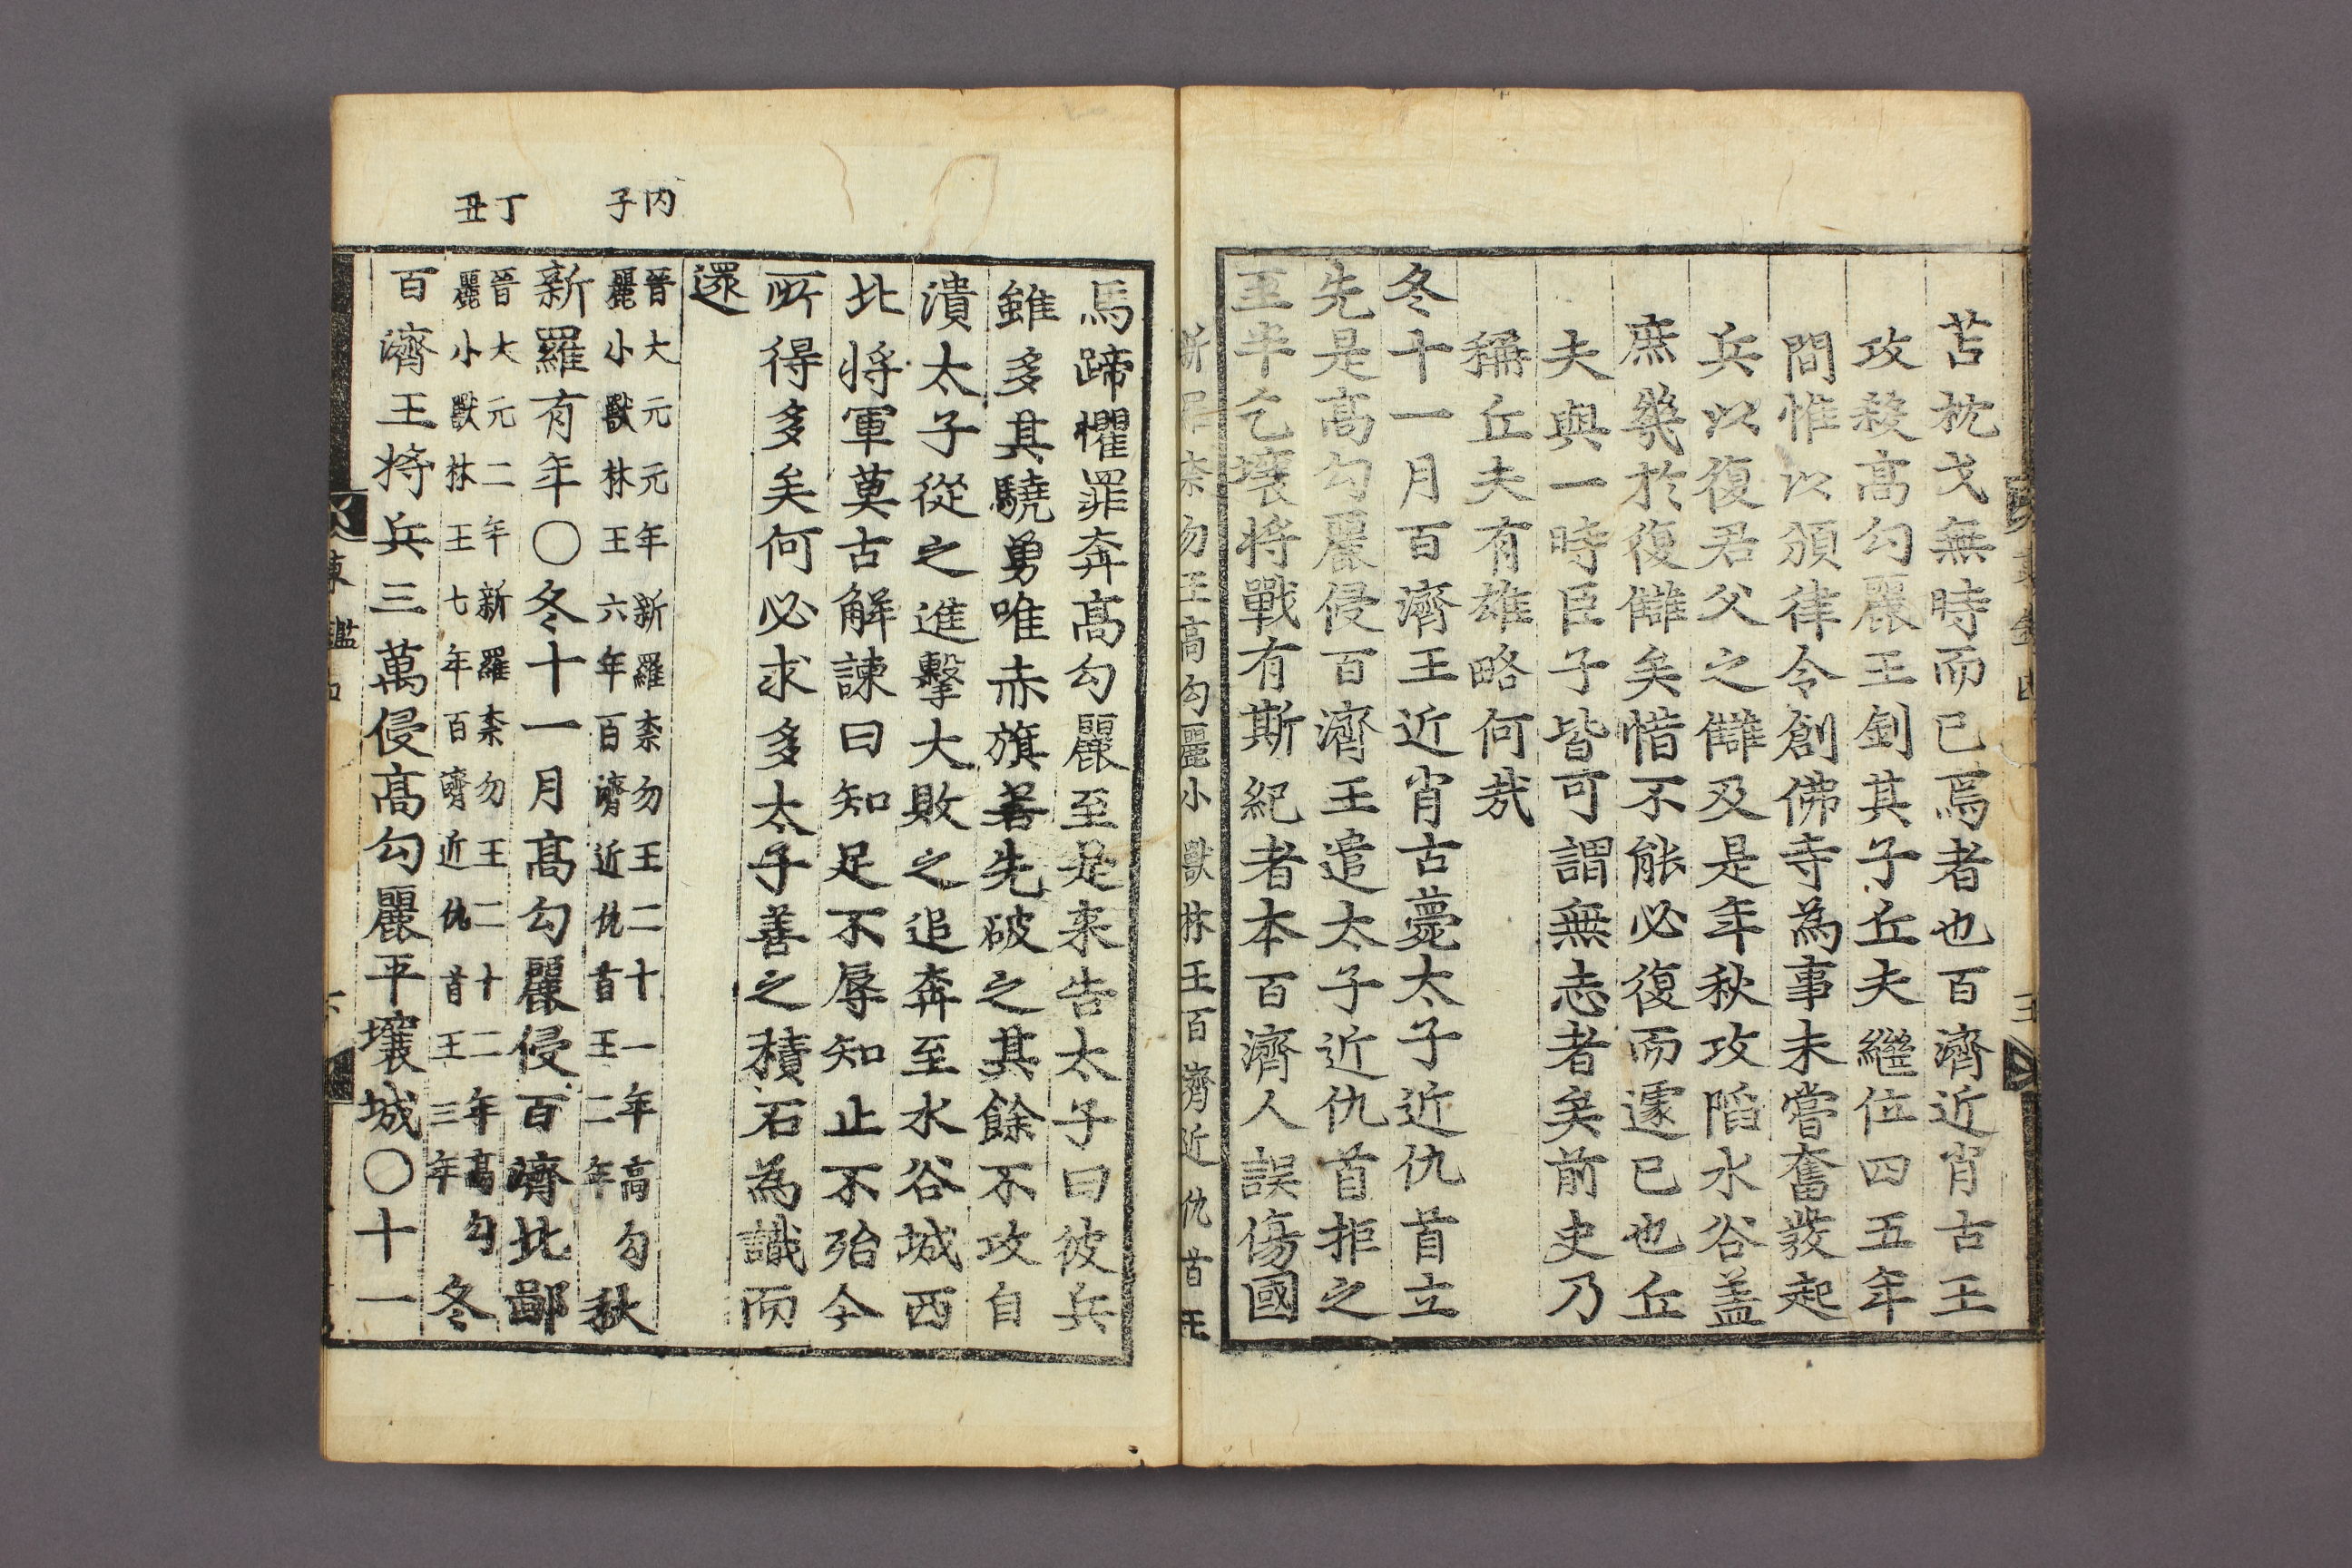 苫枕戈無時而已焉者也百濟近肖古王
攻殺高勾麗王釗其子丘夫繼位四五年
間惟以頒律令創佛寺為事未嘗奮發起
兵以復君父之讎及是年秋攻䧟水谷盖
庶幾於復讎矣惜不能必復而遽已也丘
夫與一時臣子皆可謂無志者矣前史乃
稱丘夫有雄略何㦲
冬十一月百濟王近肖古薨太子近仇首立
先是高勾麗侵百濟王遣太子近仇首拒之
至半乞壤将戰有斯紀者本百濟人誤傷國
新羅柰勿王高勾麗小獸林王百濟近仇首王
馬蹄懼罪奔高勾麗至是来告太子曰彼兵
雖多其驍勇唯赤旗若先破之其餘不攻自
潰太子從之進擊大敗之追奔至水谷城西
北将軍莫古解諫曰知足不辱知止不殆今
所得多矣何必求多太子善之積石為識而
還
丙子
晉大元元年新羅柰勿王二十一年高勾
麗小獸林王六年百濟近仇首王二年
秋
新羅有年〇冬十一月高勾麗侵百濟北鄙
丁丑
晉大元二年新羅柰勿王二十二年高勾
麗小獸林王七年百濟近仇首王三年
冬
百濟王将兵三萬侵高勾麗平壤城〇十一
東 鑑